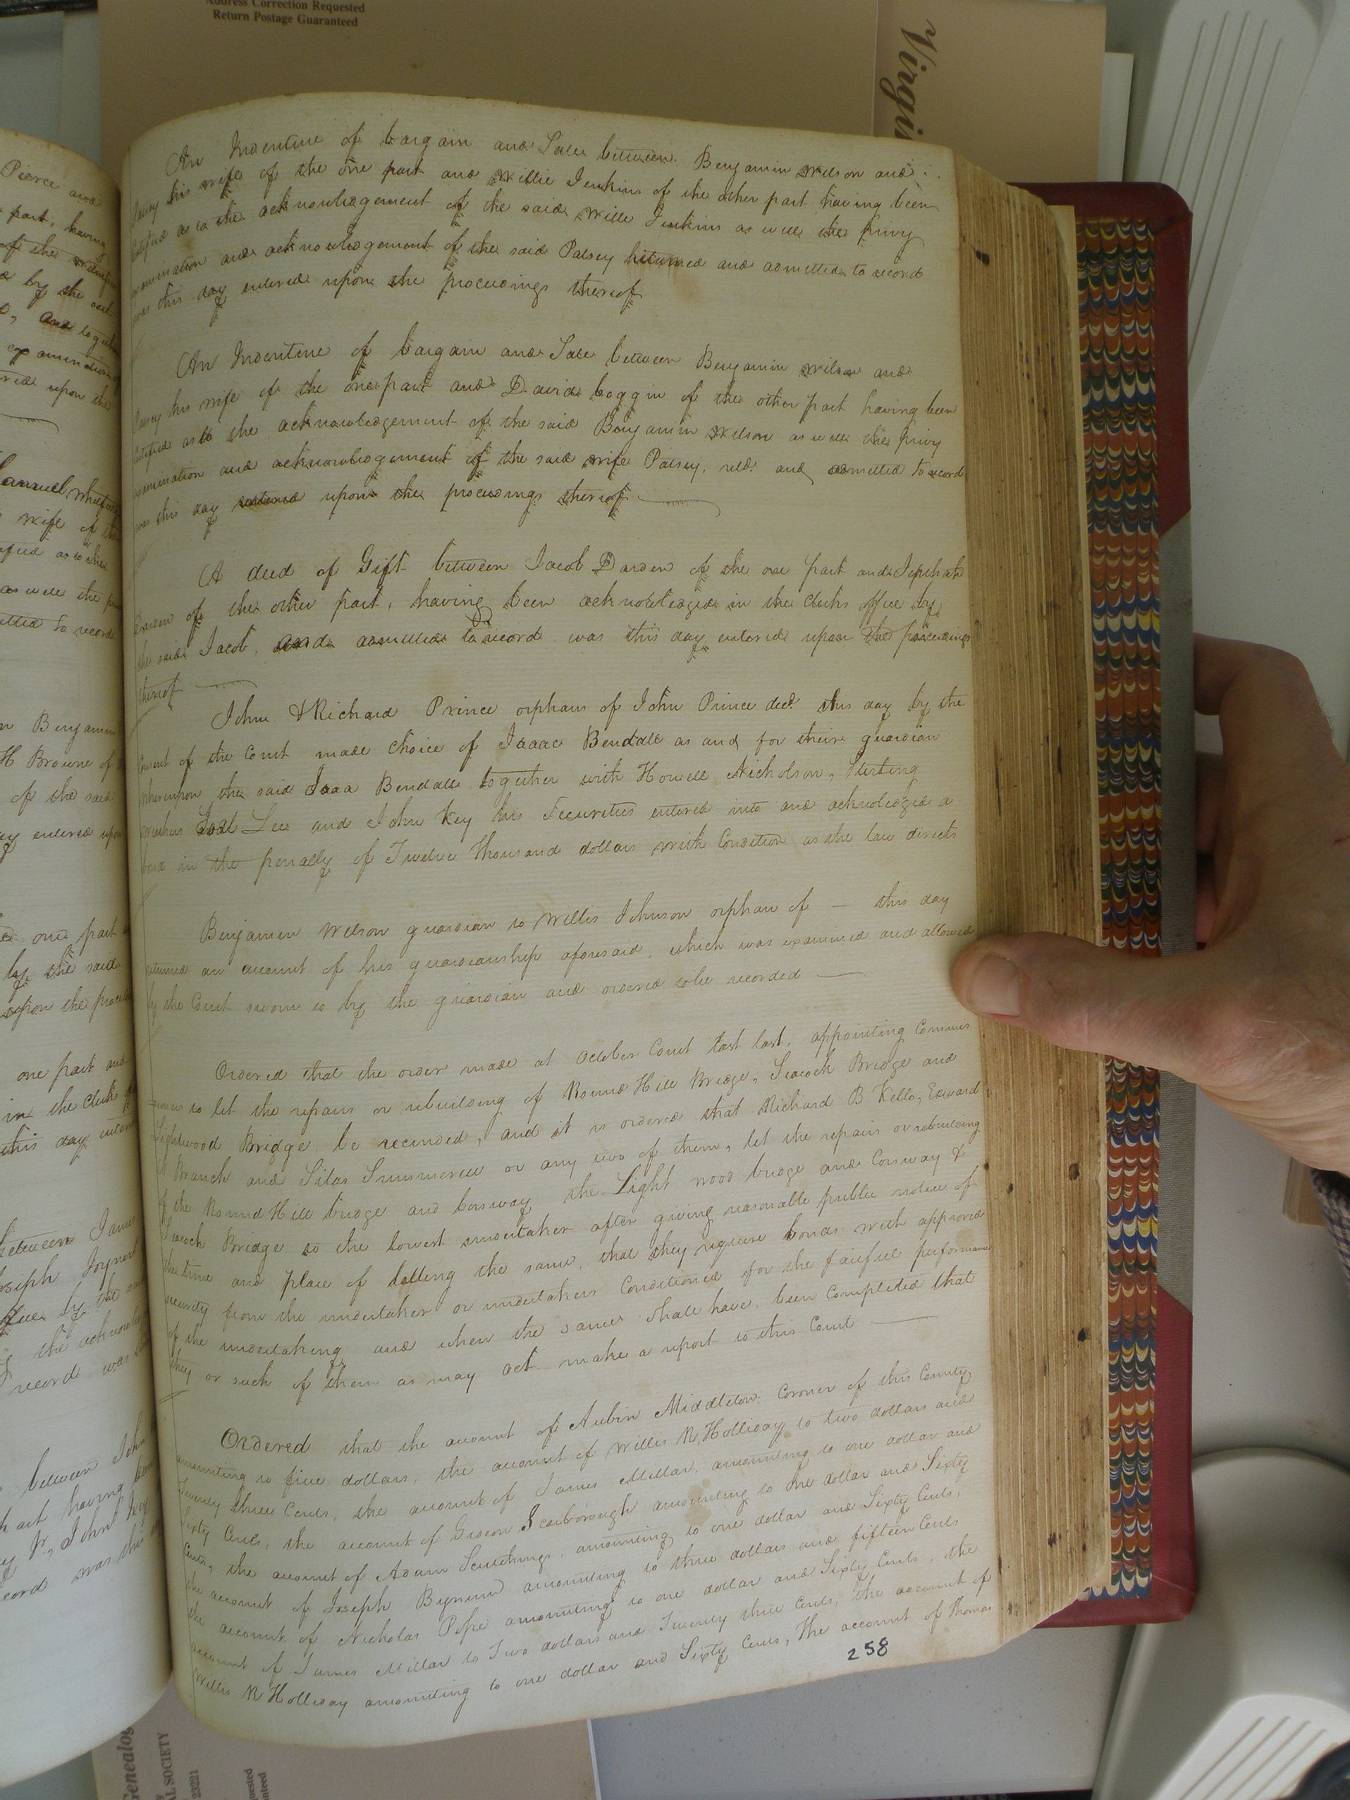 Address Correction Requested
Return Postage Guaranteed
Virgi
An Indenture of bargain and Sale between Benjamin Wilson and
his wife of the one part and Willie Jenkins of the other part having been
as to the acknowledgement of the said Willie Jenkins as well the privy
examination and acknowledgement of the said Patsey returned and admitted to record
was this day entered upon the proceedings thereof
An Indenture of bargain and Sale between Benjamin Wilson and
Patsey his wife of the one part and David Coggin of the other part having been
certified as to the acknowledgement of the said Benjamin Wilson as well the privy
examination and acknowledgement of the said wife Patsey, retd and admitted to record
was this day entered upon the proceedings thereof
A deed of Gift between Jacob Darden of the one part and Jephthah
Darden of the other part, having been acknowledged in the Clerks office by
the said Jacob, and admitted to record was this day entered upon the proceedings
thereof
John & Richard Prince orphans of John Prince decd this day by the
consent of the Court made choice of Isaac Bendall as and for their guardian
whereupon the said Isaa Bendall together with Howell Nicholson, Sterling
Lee and John Key his Securities entered into and acknoledged a
bond in the penalty of Twelve thousand dollars with Condition as the law directs
Benjamin Wilson guardian to Willis Johnson orphan of — this day
returned an account of his guardianship aforesaid, which was examined and allowed
by the Court sworn to by the guardian and ordered to be recorded
Ordered that the order made at October Court last last, appointing Commis
sioners to let the repairs or rebuilding of Round Hill Bridge, Seacock Bridge and
Lightwood Bridge be recinded, and it is ordered that Richard B Kello, Edward
Branch and Silas Summerell or any two of them, let the repairs or rebuilding
of the Round Hill bridge and Corsway the Light wood bridge and Corsway &
Seacock Bridge to the lowest undertaker after giving reasonable public notice of
the time and place of letting the same, that they require bonds with approved
security from the undertaker or undertakers Conditioned for the faithful performance
of the undertaking and when the same shall have been Completed that
they or such of them as may act make a report to this Court
Ordered that the account of Aubin Middleton Coroner of this County
amounting to five dollars, the account of Willis R Holliday to two dollars and
Twenty three Cents, the account of James Millar, amounting to one dollar and
Sixty Cents, the account of Gideon Scarborough amounting to one dollar and Sixty
Cents, the account of Adam Scutchings, amounting to one dollar and Sixty Cents,
the account of Joseph Bynum amounting to three dollars and fifteen Cents
the account of Nicholas Pope amounting to one dollar and Sixty Cents, the
account of James Millar to Two dollars and Twenty three Cents, the account of
Willis R Holliday amounting to one dollar and Sixty Cents, the account of Thomas
258
Pierce and
part, having
of the
by the
and
examination
upon the
wife of
as to the
as well the
to record
Benjamin
H Browne of
of the said
entered upon
one part
by the said
upon the
one part and
in the Clerk
this day
between James
Joseph Joyner
by the
the
record was
between John
part having
Jr, John
record was this
Genealog
SOCIETY
23221